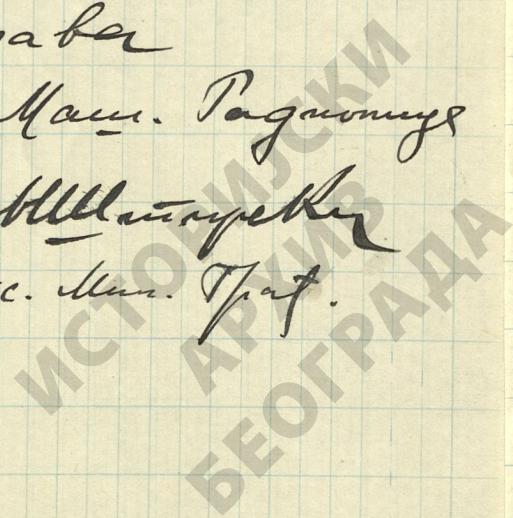 рава
Маш. Радионице
Штуреку
с. Мин. Грађ.
ИСТОРИЈСКИ
АРХИВ
БЕОГРАДА